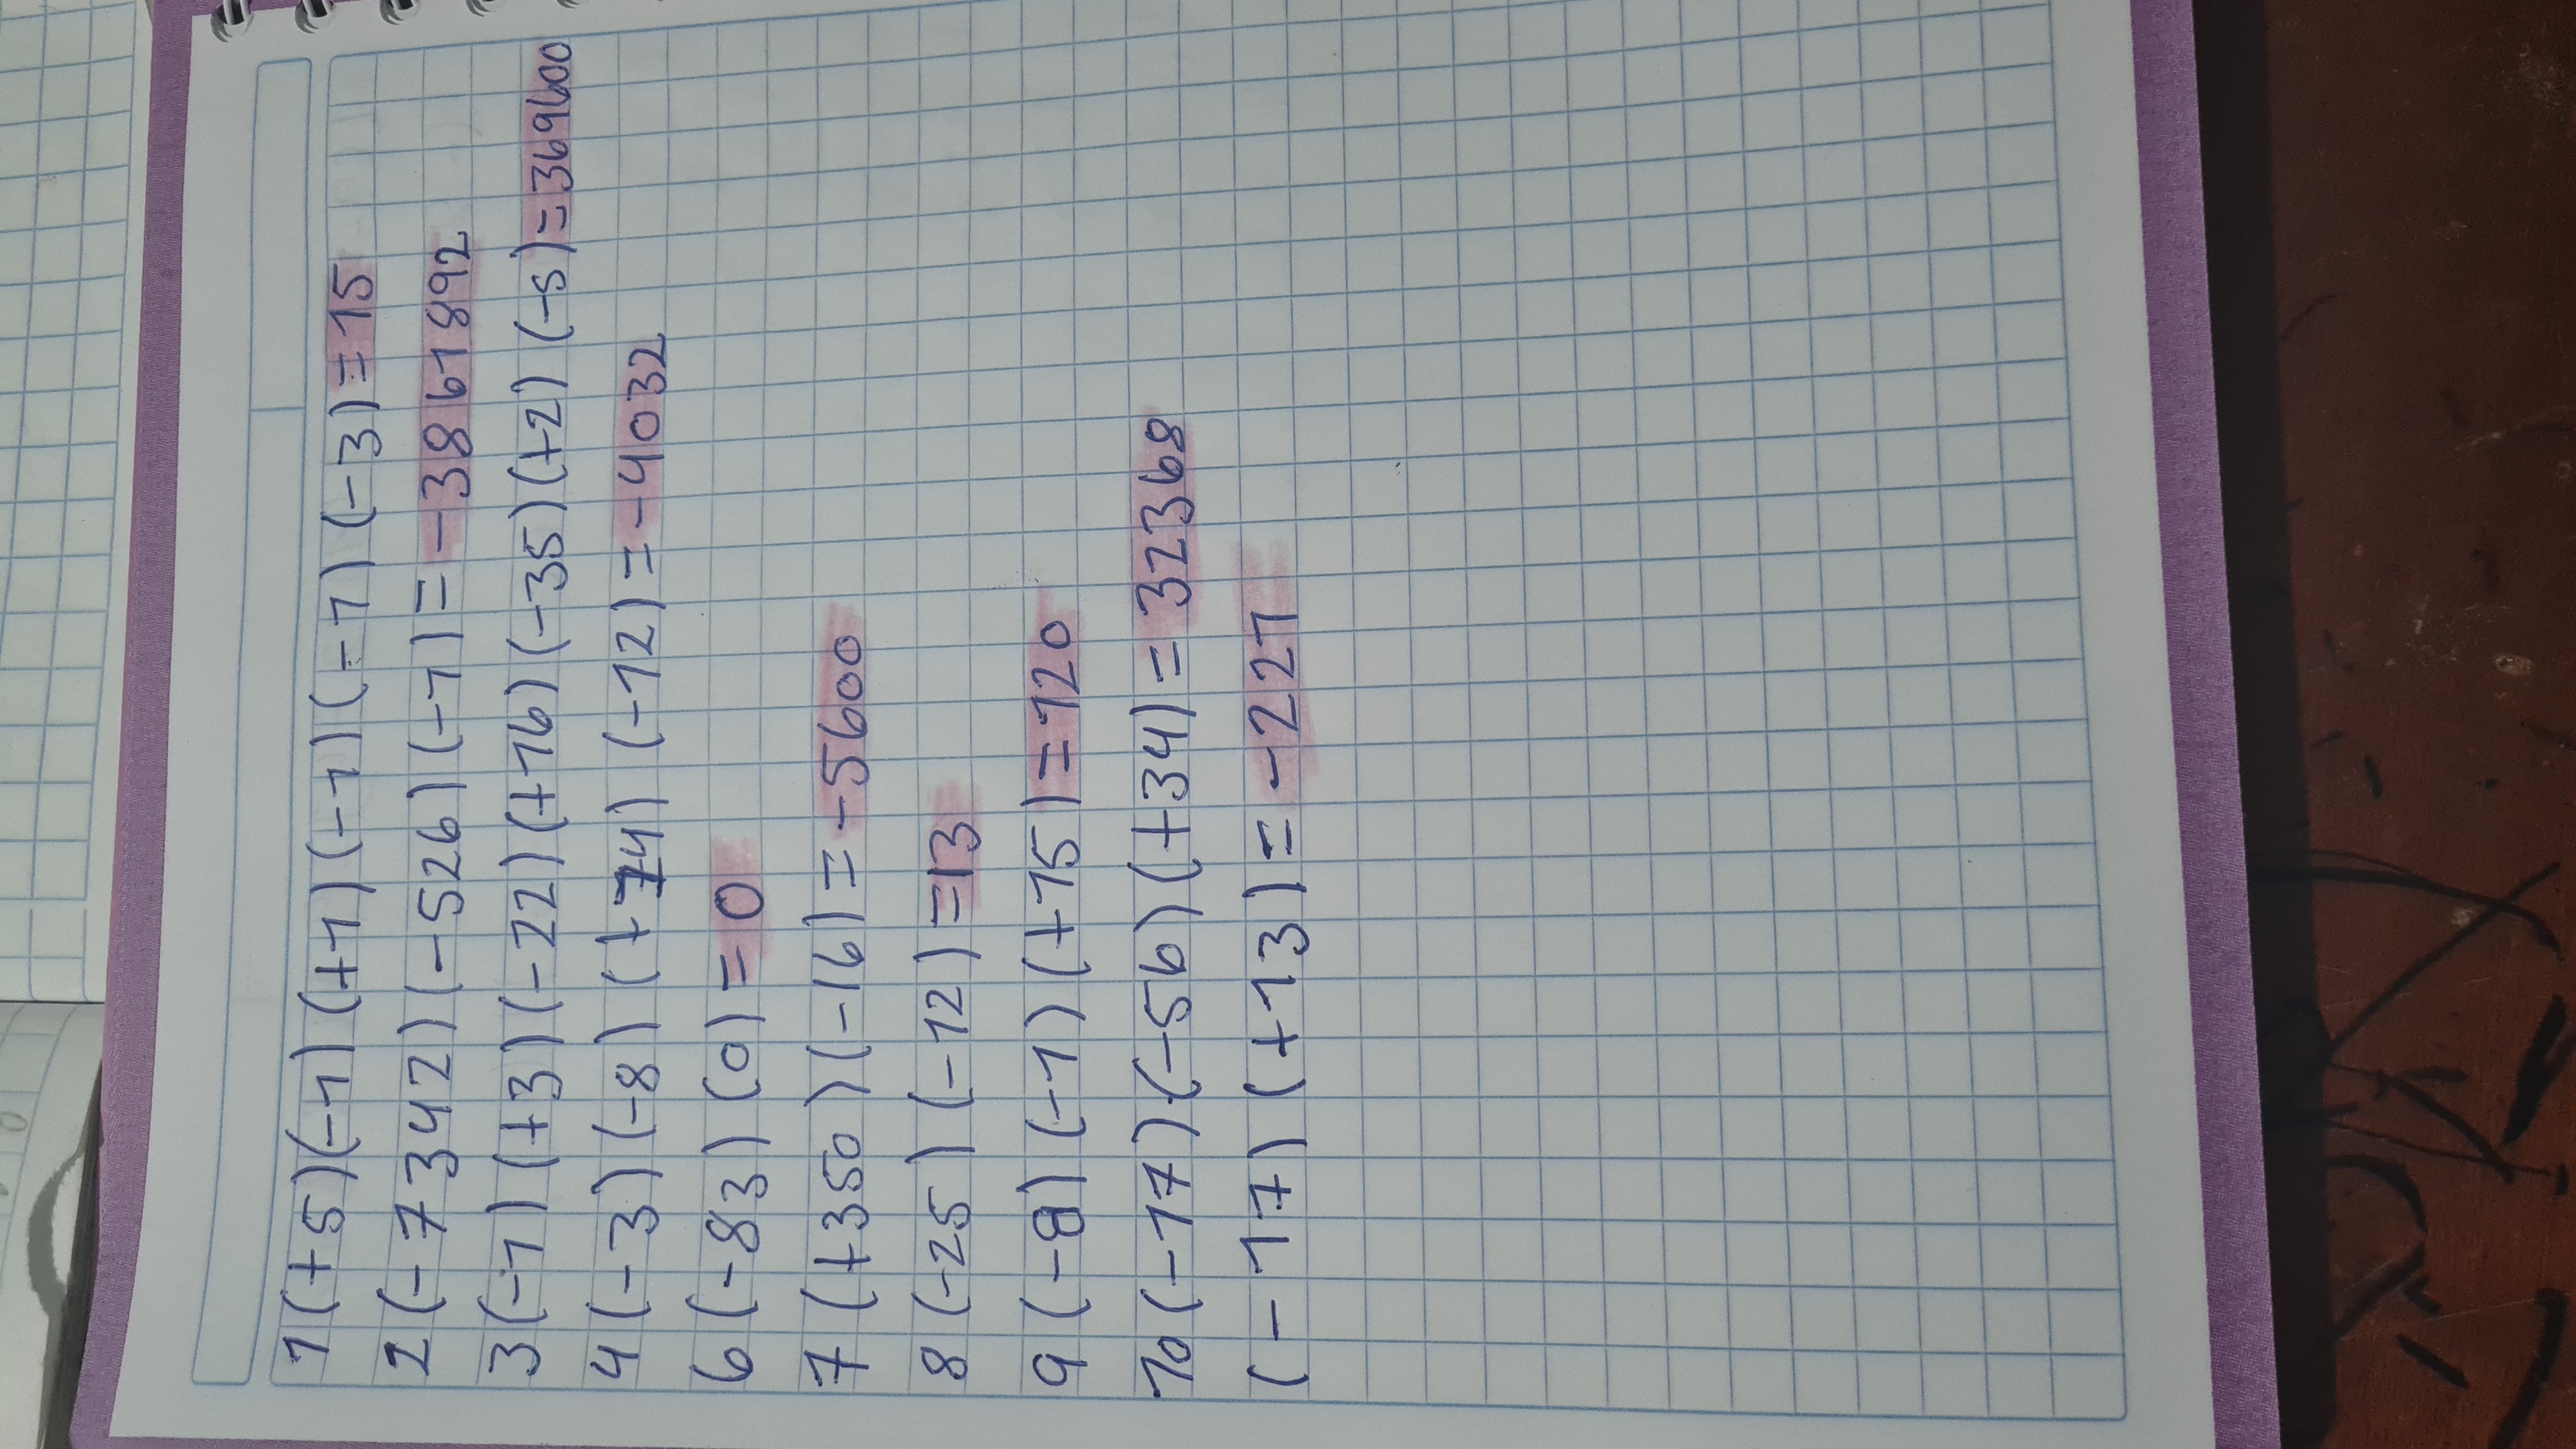 1(+5)(-1)(+1)(-1)(-1)(-3)=15
2(-7342)(-526)(-1)=-3861892
3(-1)(+3)(-22)(+16)(-35)(+2)(-5)=369600
4(-3)(-8)(+14)(-12)=-4032
6(-83)(0)=0
7(+350)(-16)=-5600
8(-25)(-12)=13
9(-8)(-1)(+15)=120
10(-17).(-56)(+34)=32368
(-17)(+13)=-221